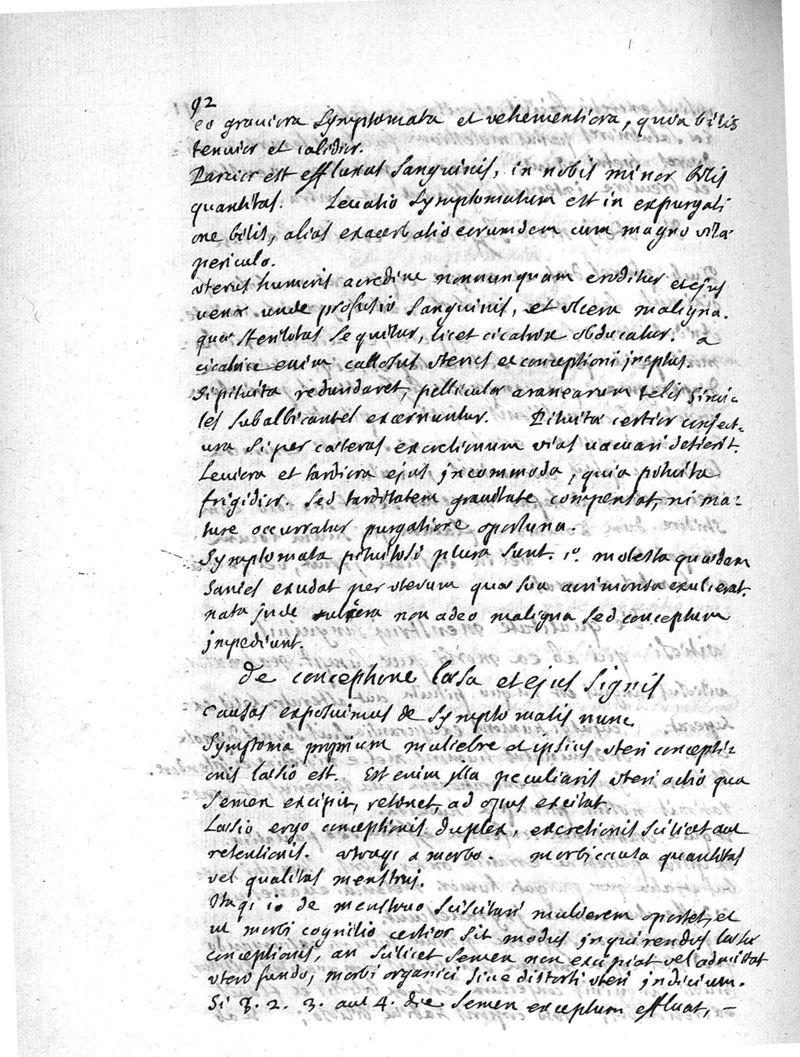 92
eo graviora symptomata et vehementiora, quia bilis
tenuior et calidior.
Parcior est effluxus sanguinis, in nobis minor bilis
quantitas. Levatio symptomatum est in expurgati
one bilis, alias exacerbatio eorumdem cum magno vitæ
periculo.
uterus humoris acredine nonnunquam eroditur et ejus
venæ unde profusio sanguinis, et ulcera maligna.
quos sterilitas sequitur, licet cicatrix obducatur. a
cicatrice enim callosus uterus et conceptioni ineptus.
Si pituita redundaret, pelliculæ aranearum telis simi-
les subalbicantes excernuntur. Pituitæ certior conject-
ura si per cæteras excretionum vias vacuari desierit.
Leviora et tardiora ejus incommoda, quia pituita
frigidior. sed tarditatem gravitate compensat, ni ma-
ture occurratur purgatione oportuna.
Symptomata pituitosi plura sunt. 1o. molesta quædam
sanies exudat per uterum quæ sua acrimonia exulcerat.
nata inde ulcera non adeo maligna sed conceptum
impediunt.
de conceptione læsa et ejus signis
Causas exposuimus de symptomatis nunc
Symptoma proprium muliebre et ipsius uteri concepti-
onis læsio est. Est enim illa peculiaris uteri actio qua
semen excipit, retinet, ad opus excitat.
Læsio ergo conceptionis duplex, excretionis scilicet aut
retentionis. utraq; a morbo. morbi causa quantitas
vel qualitas menstrui.
Itaq; 1o de menstruo sciscitari mulierem oportet, et
ut morbi cognitio certior sit modus inquirendus læsæ
conceptionis, an scilicet semen non excipiat vel admittat
uteri fundo, morbi organici sive distorti uteri indicium.
Si 2. 3. aut 4. die semen exceptum effluat, -